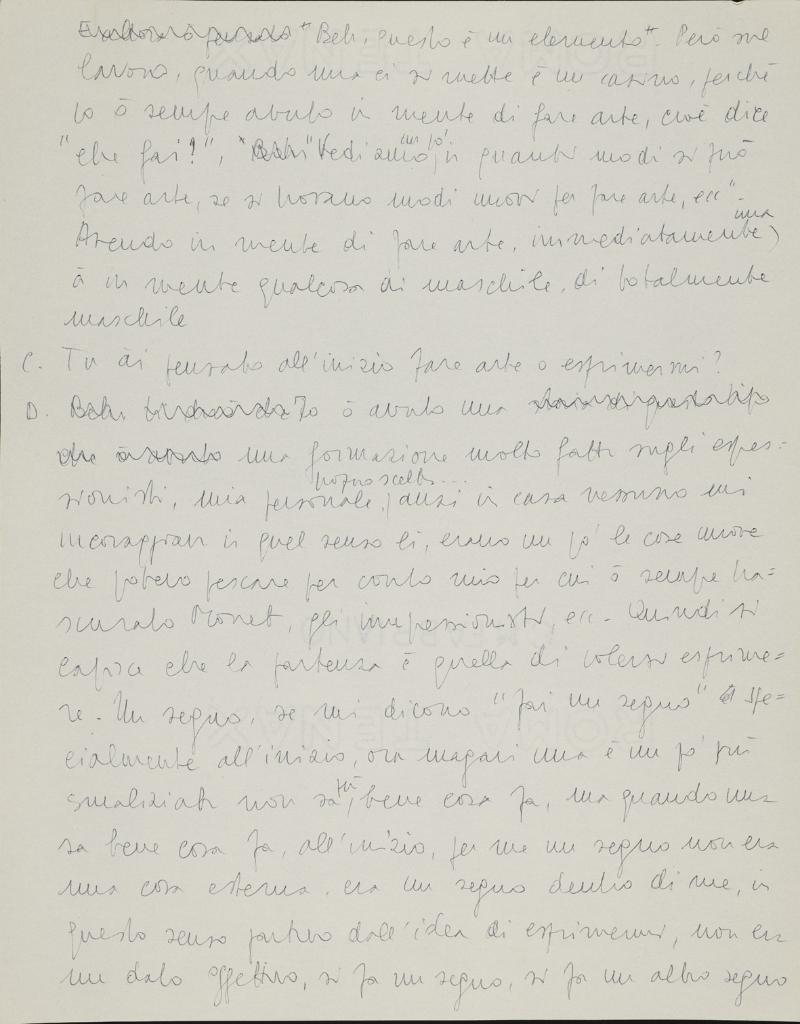 "Beh, questo è un elemento". Però nel
lavoro, quando una ci si mette è un casino, perché
io ò sempre avuto in mente di fare arte, cioè dice
"che fai?", "Vediamo un po' in quanti modi si può
fare arte, se si trovano modi nuovi per fare arte, ecc".
Avendo in mente di fare arte, immediatamente una
à in mente qualcosa di maschile, di totalmente
maschile
C. Tu ài pensato all'inizio fare arte o esprimermi?
D. Io ò avuto una
una formazione molto fatta sugli espres=
sionisti, mia personale, propria scelta... anzi in casa nessuno mi
incoraggiava in quel senso lì, erano un po' le cose nuove
che potevo pescare per conto mio per cui ò sempre tra=
scurato Monet, gli impressionisti, ecc. Quindi si
capisce che la partenza è quella di volersi esprime=
re. Un segno, se mi dicono "fai un segno" spe=
cialmente all'inizio, ora magari una è un po' più
smaliziata non sa più bene cosa fa, ma quando una
sa bene cosa fa, all'inizio, per me un segno non era
una cosa esterna, era un segno dentro di me, in
questo senso partivo dall'idea di esprimermi, non era
un dato oggettivo, si fa un segno, si fa un altro segno